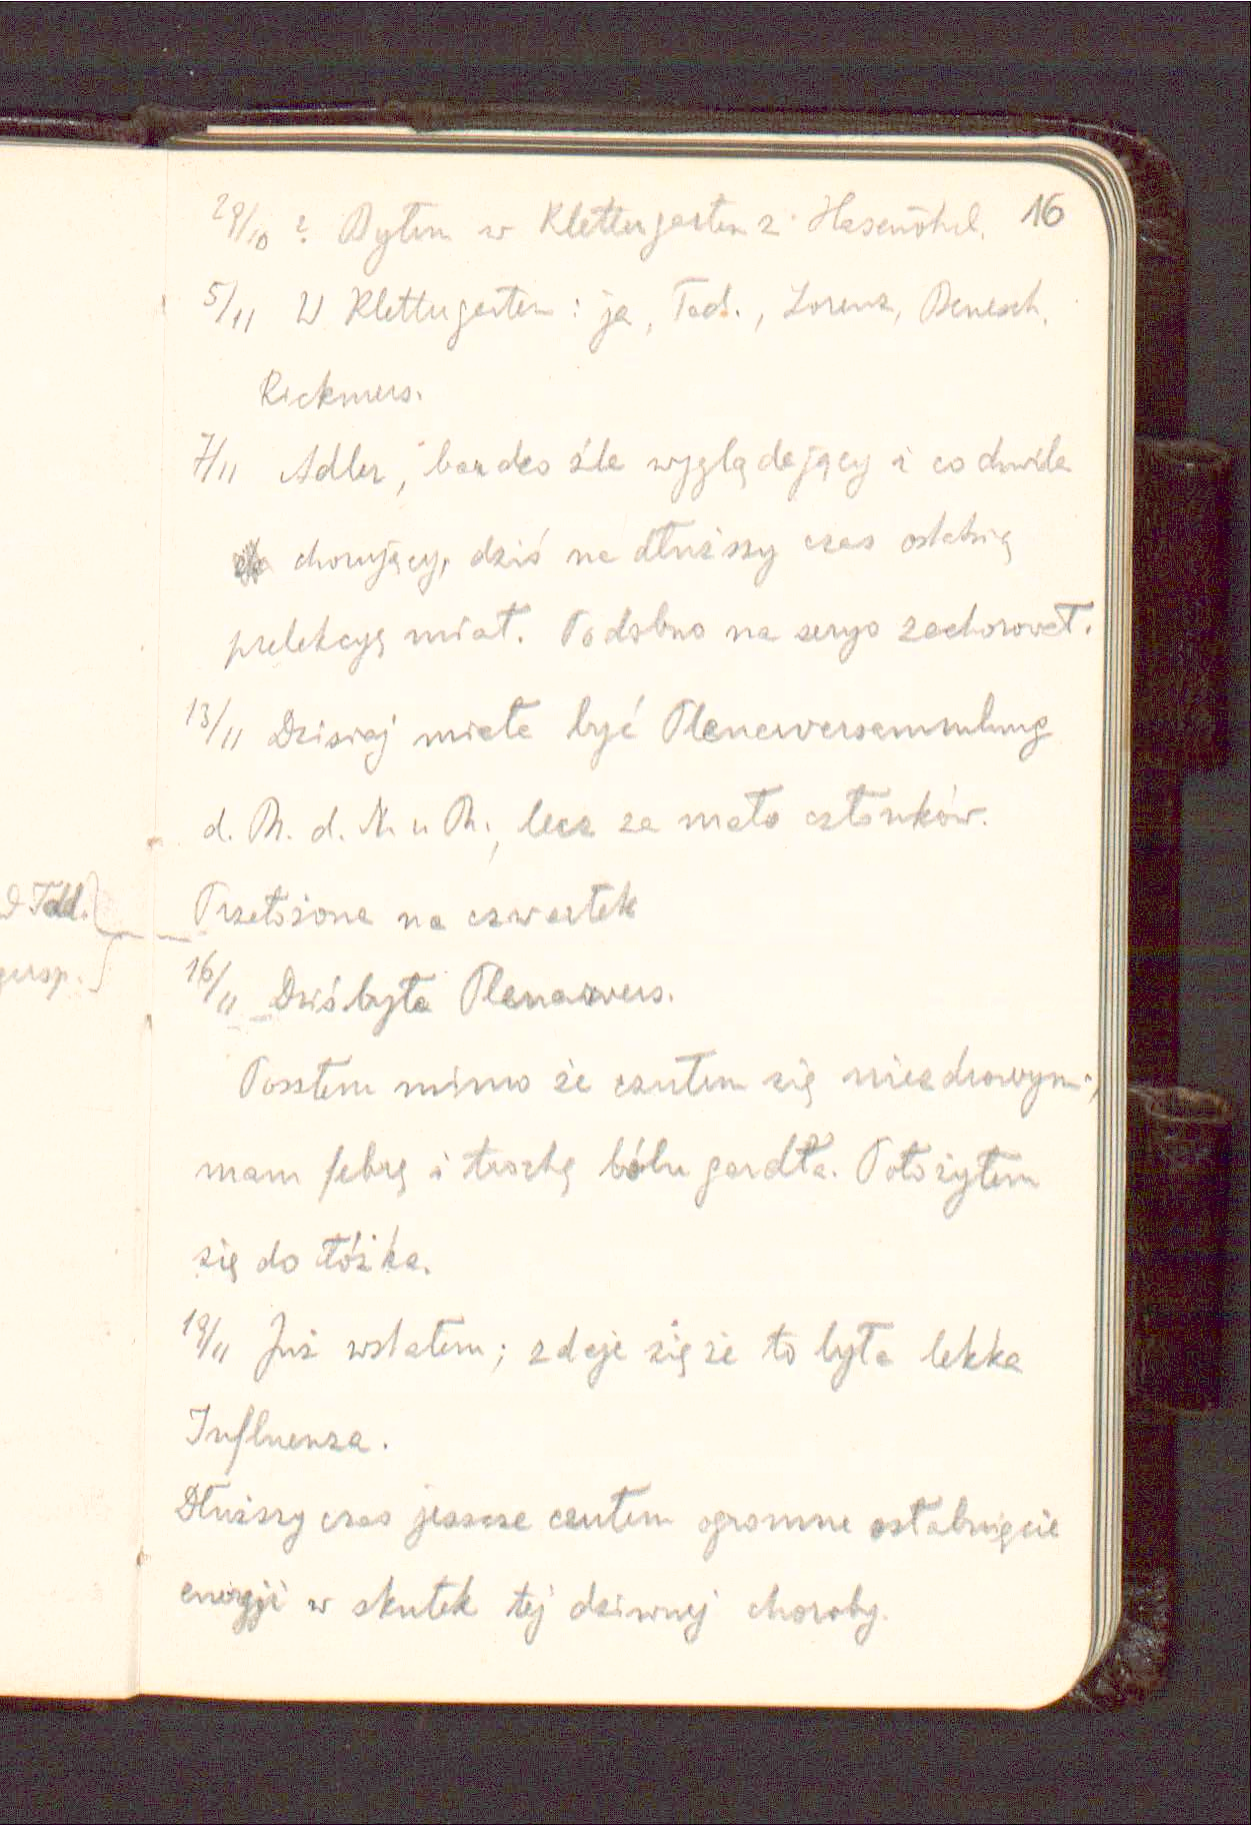 16
29/10 ? Byłem w Klettergarten z Hasenöhrl.
5/11 W Klettergarten: ja, Tad., Lorenz, Benesch,
Rickmers.
7/11 Adler, bardzo źle wyglądający i co chwila
chorujący, dziś na dłuższy czas ostatnią
prelekcyę miał. Podobno na seryo zachorował.
13/11 Dzisiaj miała być Plenarversammlung
d. B. d. N. u B., lecz za mało członków.
Przełożona na czwartek
16/11 Dziś była Plenarvers.
Poszłem mimo że czułem się niezdrowym;
mam febrę i trochę bólu gardła. Położyłem
się do łóżka.
19/11 Już wstałem; zdaje się że to była lekka
Influenza.
Dłuższy czas jeszcze czułem ogromne osłabnięcie
energji w skutek tej dziwnej choroby.
Tad.